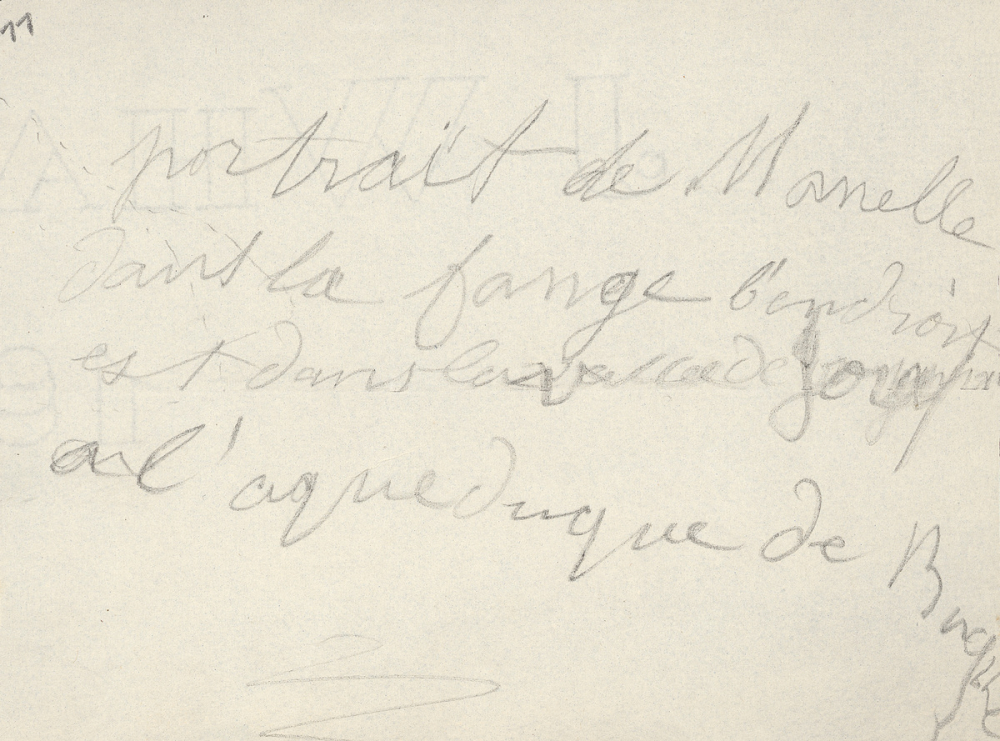 11
portrait de Monelle
dans la fange l'endroit
est dans la vallee de
a l'aqueduque de